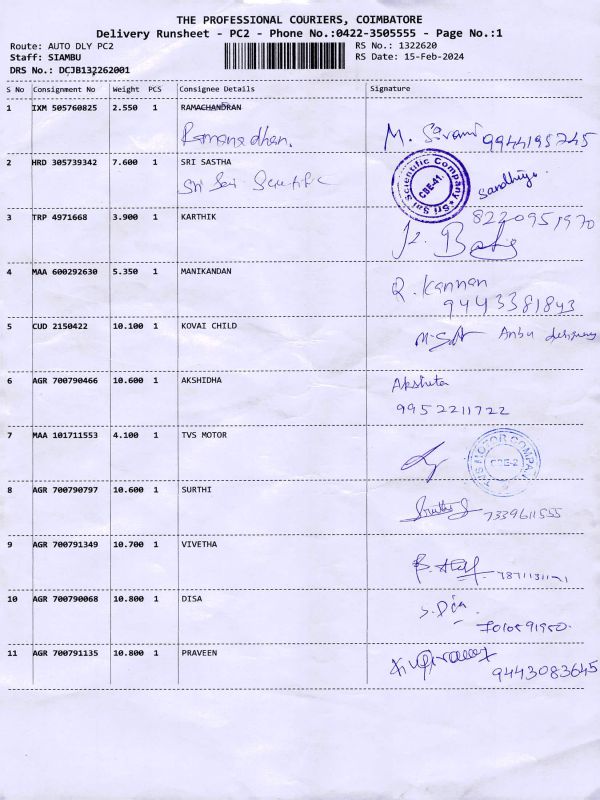 THE PROFESSIONAL COURIERS, COIMBATORE
Delivery Runsheet - PC2 - Phone No.:0422-3505555 - Page No.:1
Route: AUTO DLY PC2 RS No.: 1322620
Staff: SIAMBU RS Date: 15-Feb-2024
DRS No.: DCJB132262001
S No Consignment No Weight PCS Consignee Details Signature
1 IXM 505760825 2.550 1 RAMACHANDRAN
Ramanadhan. M. Saravani 9944195245
2 HRD 305739342 7.600 1 SRI SASTHA
Sri Sai Scientific Sri Sai Scientific Company CBE-41. Sandhiya
3 TRP 4971668 3.900 1 KARTHIK 8220951970
4 MAA 600292630 5.350 1 MANIKANDAN R. Kannan
9443381843
5 CUD 2150422 10.100 1 KOVAI CHILD Anbu
6 AGR 700790466 10.600 1 AKSHIDHA Akshita
9952211722
7 MAA 101711553 4.100 1 TVS MOTOR TVS MOTOR COMPANY CBE-2
8 AGR 700790797 10.600 1 SURTHI 7339611555
9 AGR 700791349 10.700 1 VIVETHA
10 AGR 700790068 10.800 1 DISA
11 AGR 700791135 10.800 1 PRAVEEN 9443083645